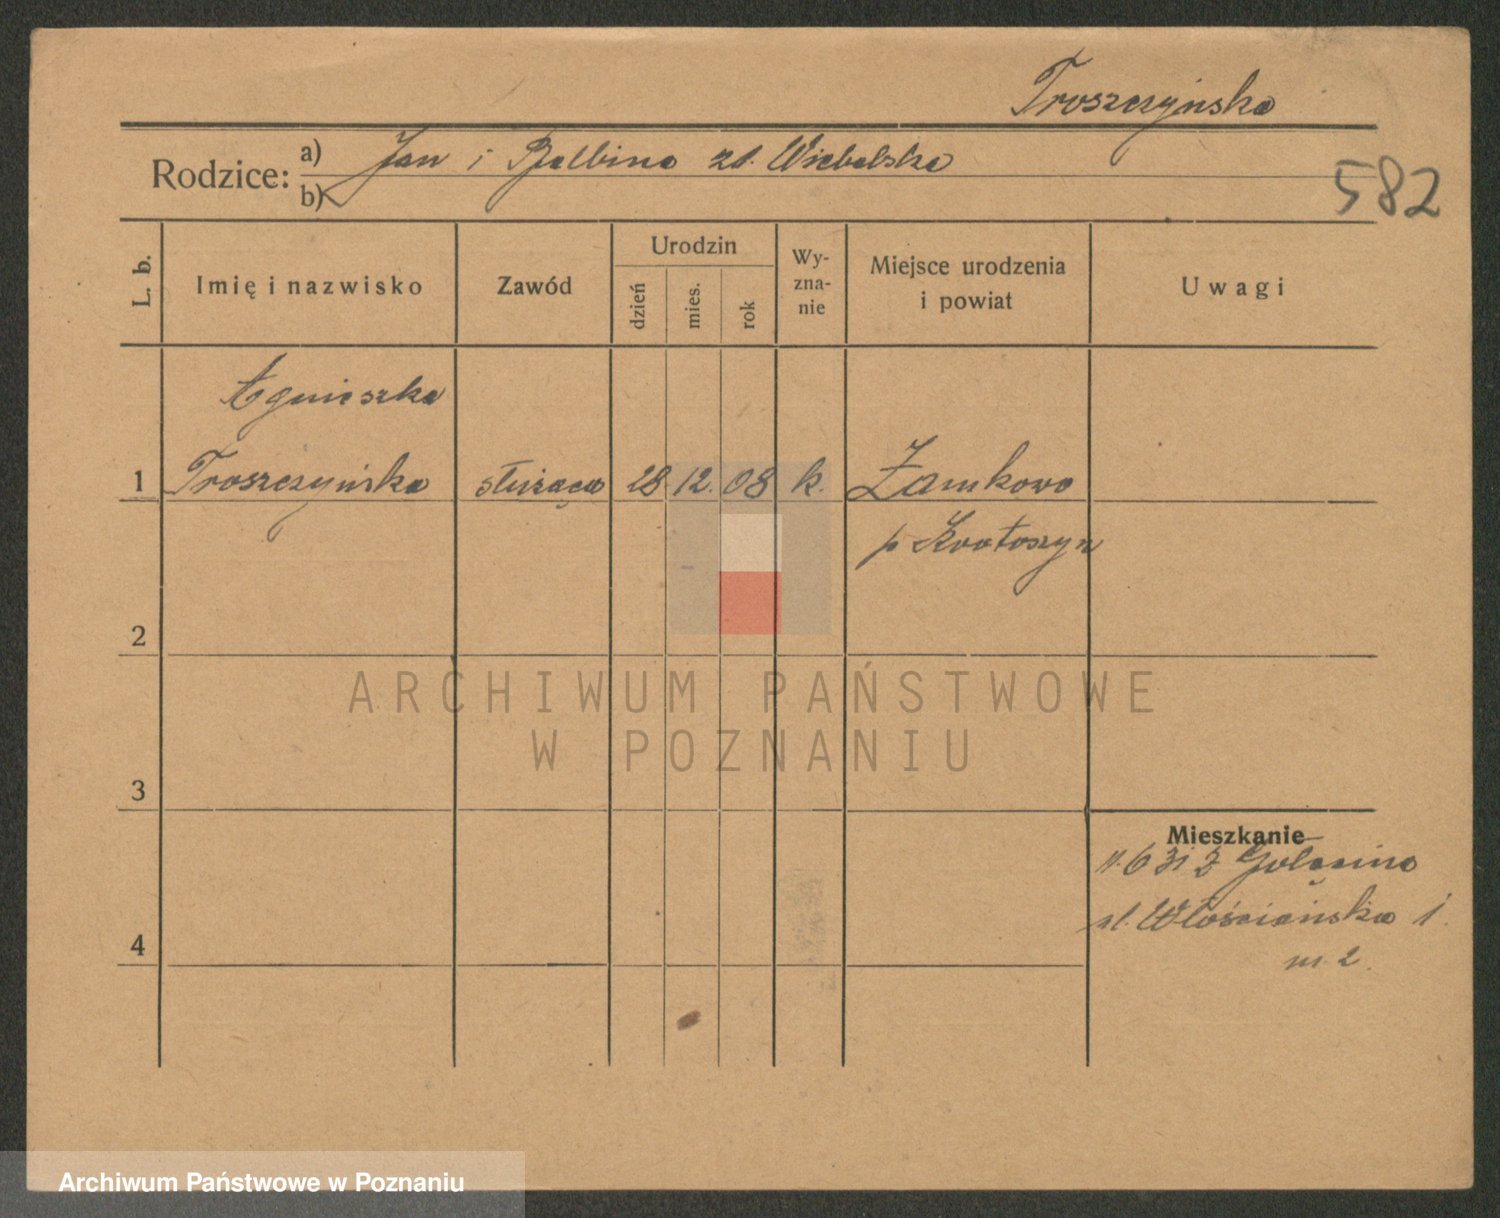 Troszczyńska
Rodzice: a) Jan i Balbina zd. Wiebelska
b)
582
L. b.
Imię i nazwisko
Zawód
Urodzin
dzień
mies.
rok
Wy-
zna-
nie
Miejsce urodzenia
i powiat
Uwagi
Agnieszka
1 Troszczyńska służąca 28 12. 08 k. Zamkowo
p Krotoszyn
2
ARCHIWUM PAŃSTWOWE
W POZNANIU
3
Mieszkanie
Golęcino
ul. Włościańska 1.
m. 2.
4
Archiwum Państwowe w Poznaniu